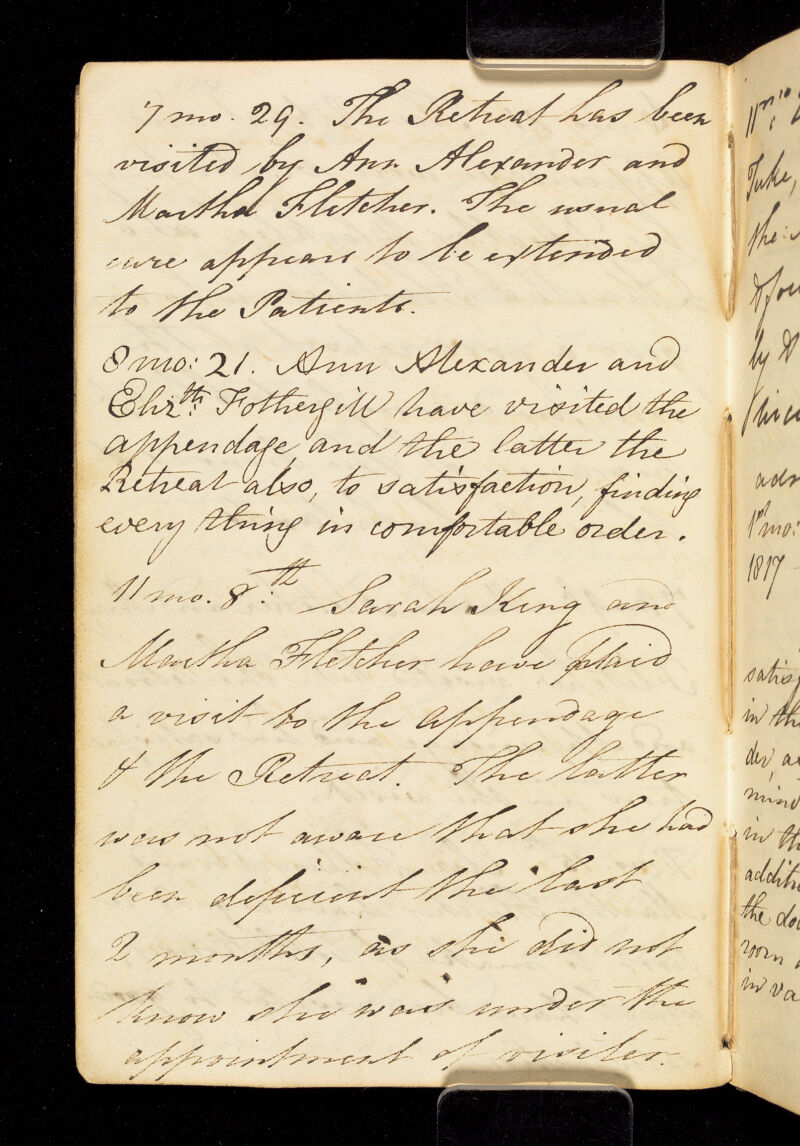 7 mo. 29. The Retreat has been
visited by Ann Alexander and
Martha Fletcher. The usual
care appears to be extended
to the Patients.
8 mo: 21. Ann Alexander and
Eliz.th Fothergill have visited the
appendage and the latter the
Retreat also, to satisfaction, finding
every thing in comfortable order.
11 mo. 8.th Sarah King and
Martha Fletcher have paid
a visit to the Appendage
& the Retreat. The latter
was not aware that she had
been deficient the last
2 months, as she did not
know she was under the
appointment of visiter.
11
Tuke,
the
by
adm
1st mo:
1817
satisf
in the
der, a
mind
in th
additi
the do
room
in va